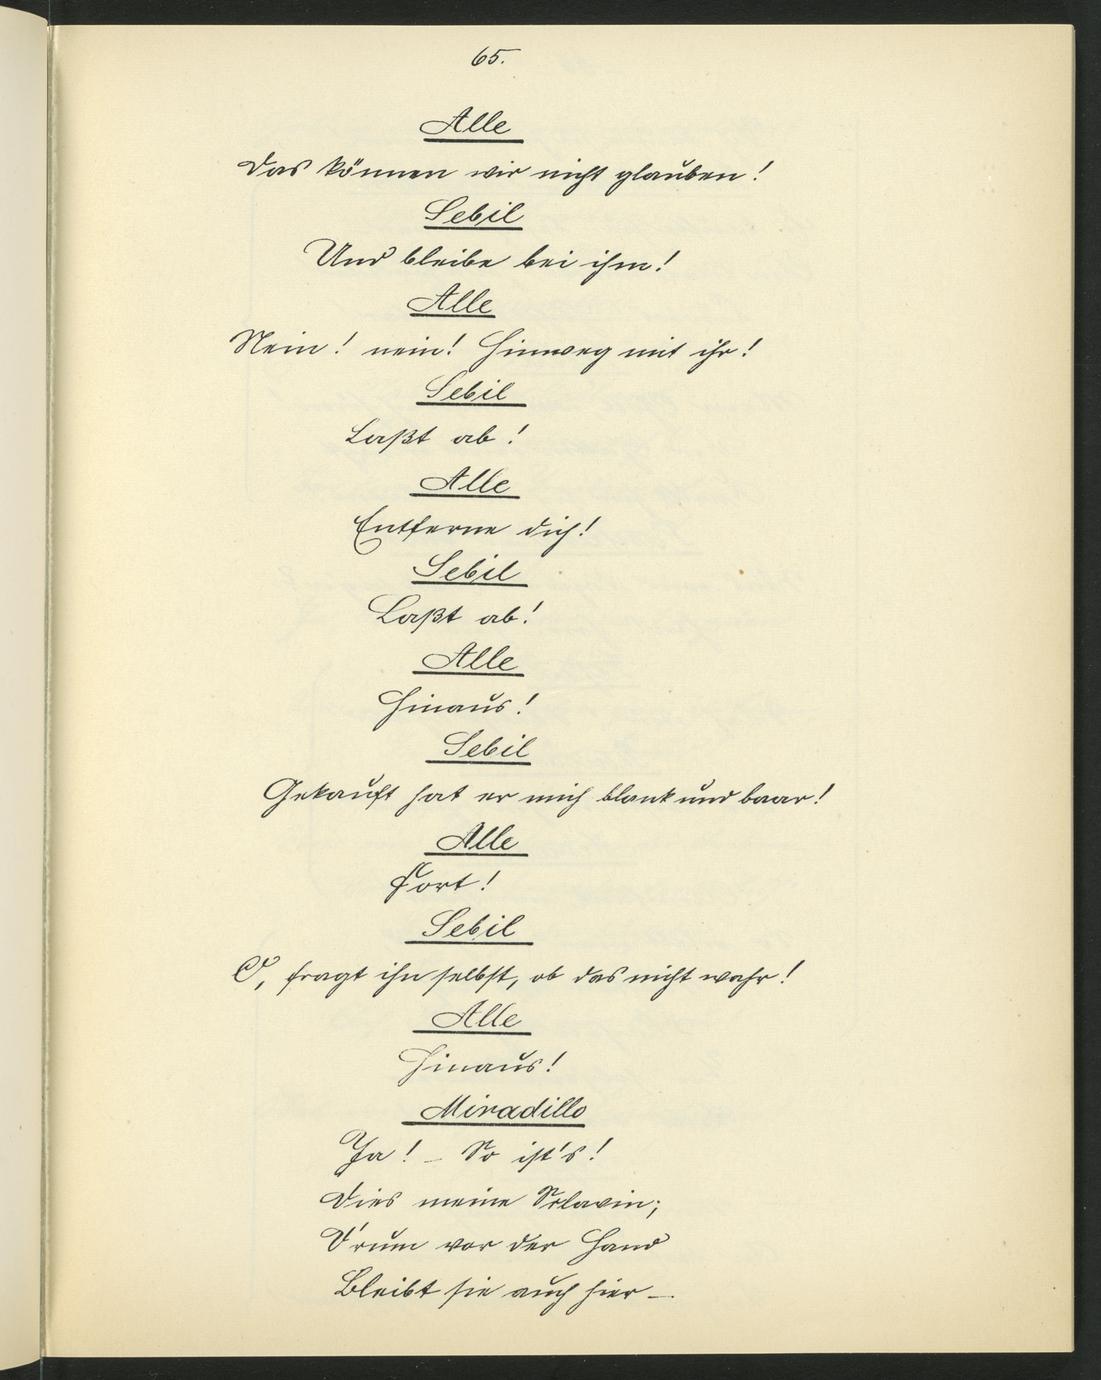 65.
Alle
Das können wir nicht glauben!
Sebil
Und bleibe bei ihm!
Alle
Nein! nein! Hinweg mit ihr!
Sebil
Laßt ab!
Alle
Entferne dich!
Sebil
Laßt ab!
Alle
Hinaus!
Sebil
Gekauft hat er mich blank und baar!
Alle
Fort!
Sebil
O, fragt ihn selbst, ob das nicht wahr!
Alle
Hinaus!
Miradillo
Ja! – So ist's!
Dies meine Sclavin;
D'rum vor der Hand
Bleibt sie auch hier –.